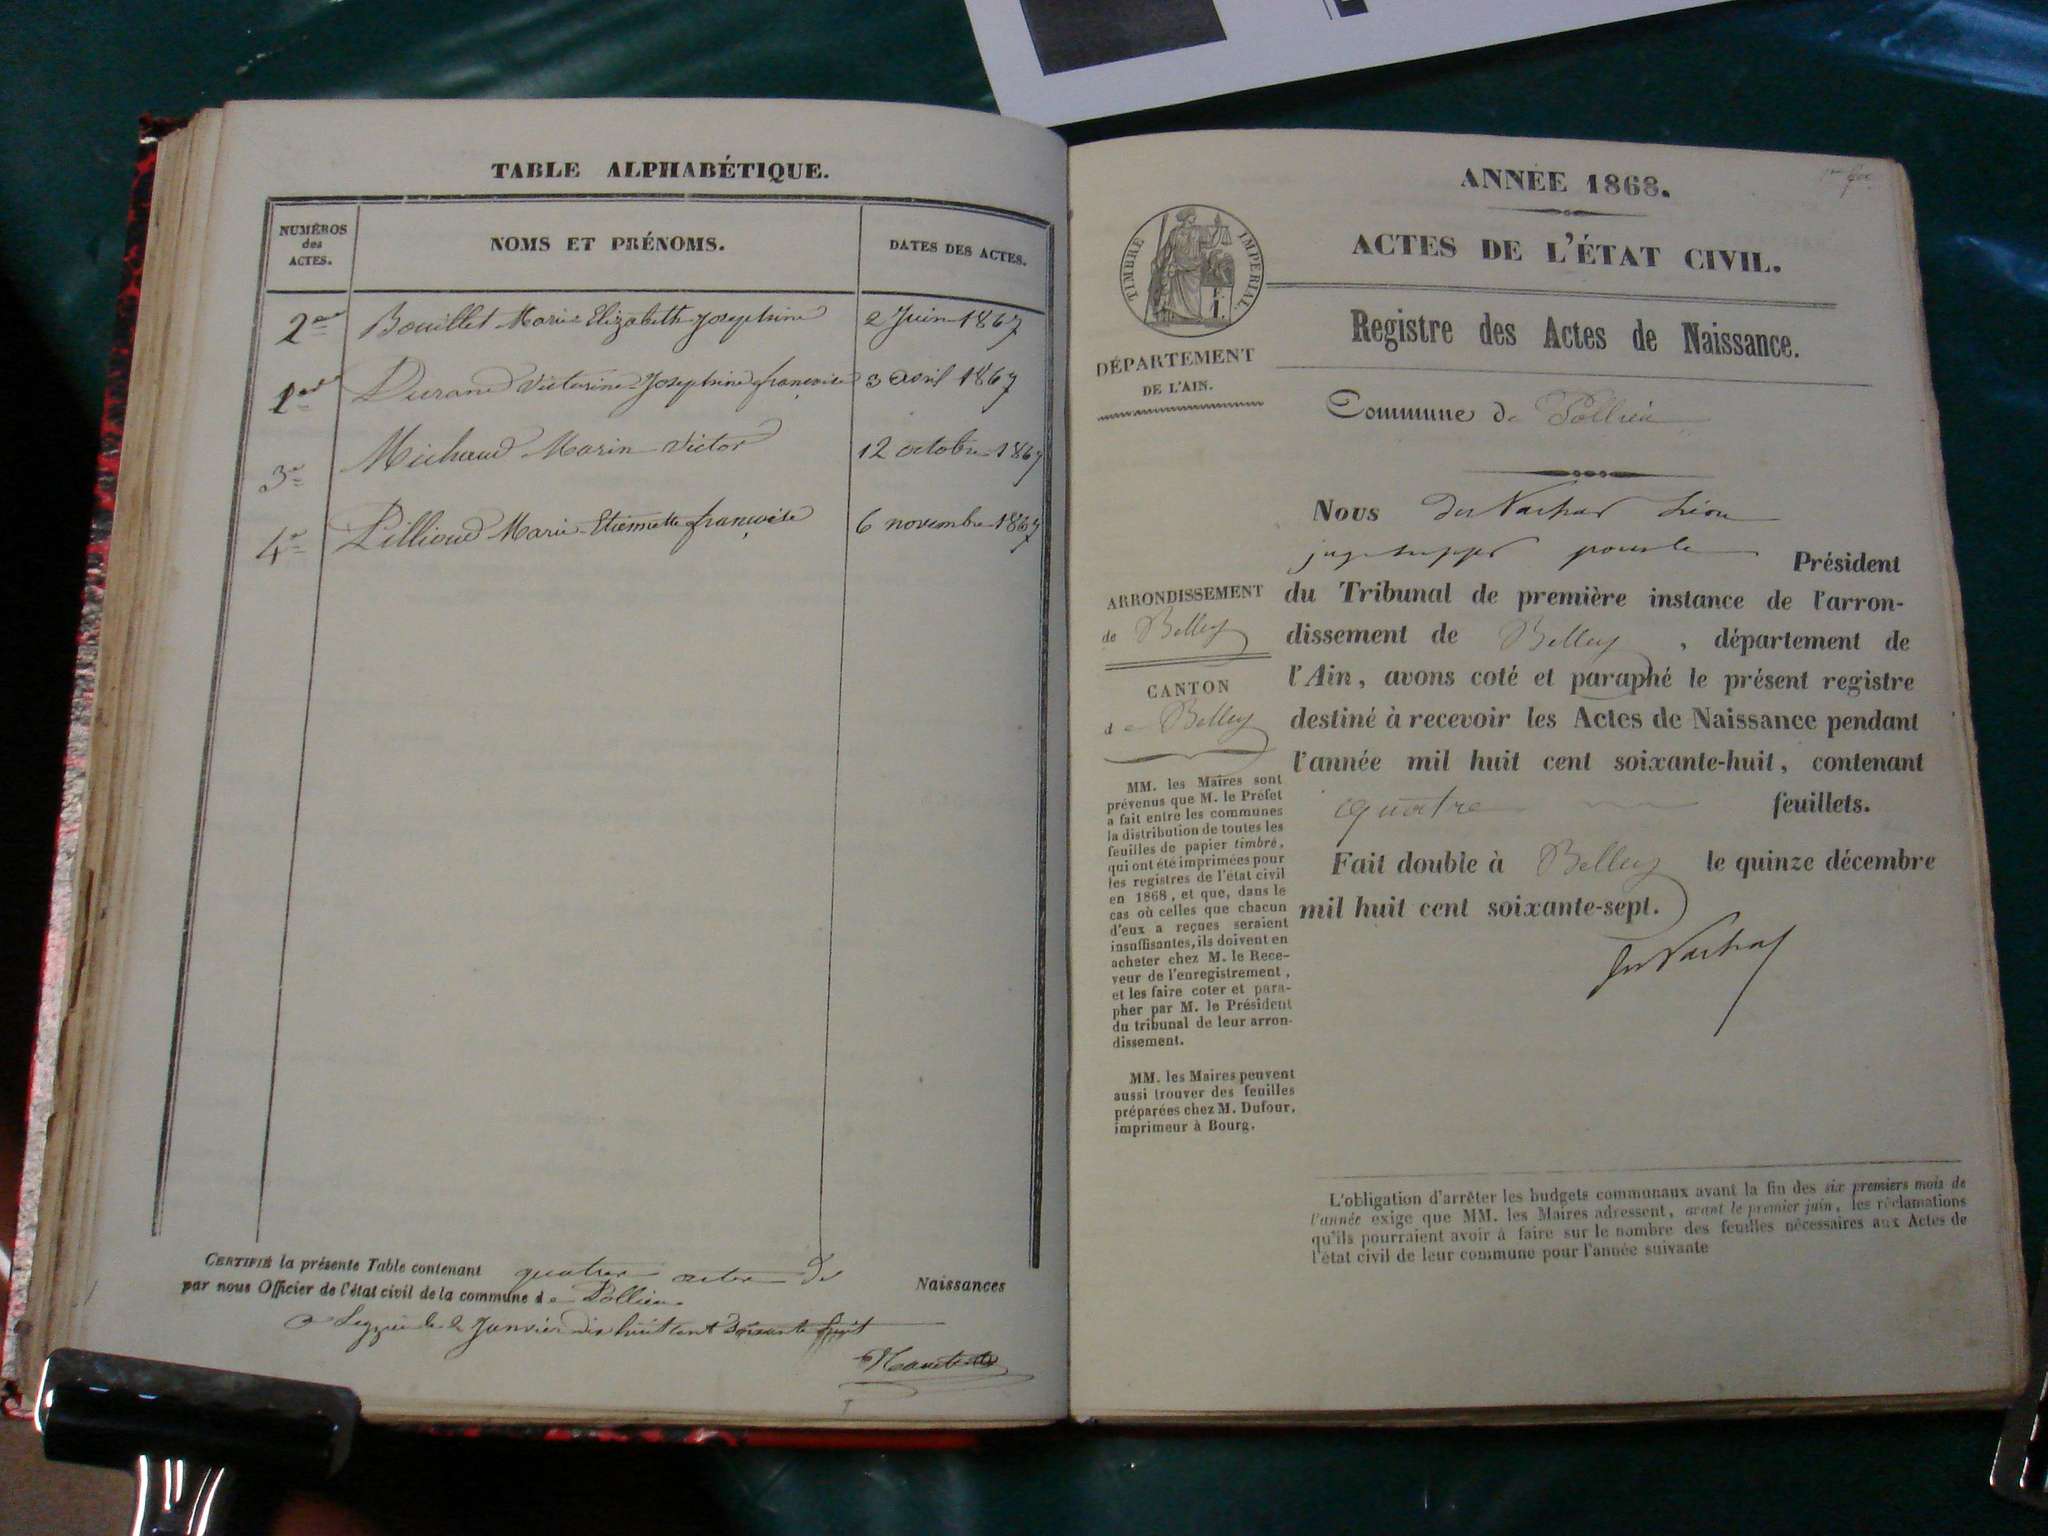 TABLE ALPHABÉTIQUE.
NUMÉROS des ACTES.
NOMS ET PRÉNOMS.
DATES DES ACTES.
2 Bouillet Marie Elizabeth Josephine 2 Juin 1867
1 Durand Victorine Josephine françoise 3 avril 1867
3e Michaud Marin Victor 12 octobre 1867
4e Pillioud Marie Etiennette françoise 6 novembre 1867
CERTIFIÉ la présente Table contenant quatre actes de Naissances
par nous Officier de l'état civil de la commune de Pollieu
le 2 Janvier dix huit cent soixante huit
ANNÉE 1868.
ACTES DE L'ÉTAT CIVIL.
TIMBRE IMPÉRIAL
Registre des Actes de Naissance.
DÉPARTEMENT
DE L'AIN.
Commune de Pollieu
Nous Léon
juge Président
du Tribunal de première instance de l'arron-
dissement de Belley, département de
l'Ain, avons coté et paraphé le présent registre
destiné à recevoir les Actes de Naissance pendant
l'année mil huit cent soixante-huit, contenant
quatre feuillets.
Fait double à Belley le quinze décembre
mil huit cent soixante-sept.
ARRONDISSEMENT
de Belley
CANTON
de Belley
MM. les Maires sont
prévenus que M. le Préfet
a fait entre les communes
la distribution de toutes les
feuilles de papier timbré,
qui ont été imprimées pour
les registres de l'état civil
en 1868, et que, dans le
cas où celles que chacun
d'eux a reçues seraient
insuffisantes, ils doivent en
acheter chez M. le Rece-
veur de l'enregistrement,
et les faire coter et para-
pher par M. le Président
du tribunal de leur arron-
dissement.
MM. les Maires peuvent
aussi trouver des feuilles
préparées chez M. Dufour,
imprimeur à Bourg.
L'obligation d'arrêter les budgets communaux avant la fin des six premiers mois de
l'année exige que MM. les Maires adressent, avant le premier juin, les réclamations
qu'ils pourraient avoir à faire sur le nombre des feuilles nécessaires aux Actes de
l'état civil de leur commune pour l'année suivante